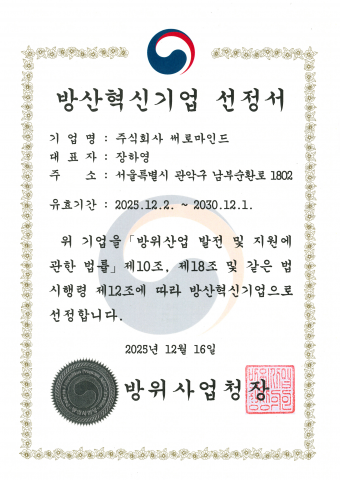 방산혁신기업 선정서
기 업 명 : 주식회사 써로마인드
대 표 자 : 장하영
주 소 : 서울특별시 관악구 남부순환로 1802
유효기간 : 2025.12.2. ~ 2030.12.1.
위 기업을「방위산업 발전 및 지원에
관한 법률」제10조, 제18조 및 같은 법
시행령 제12조에 따라 방산혁신기업으로
선정합니다.
2025년 12월 16일
방위사업청장